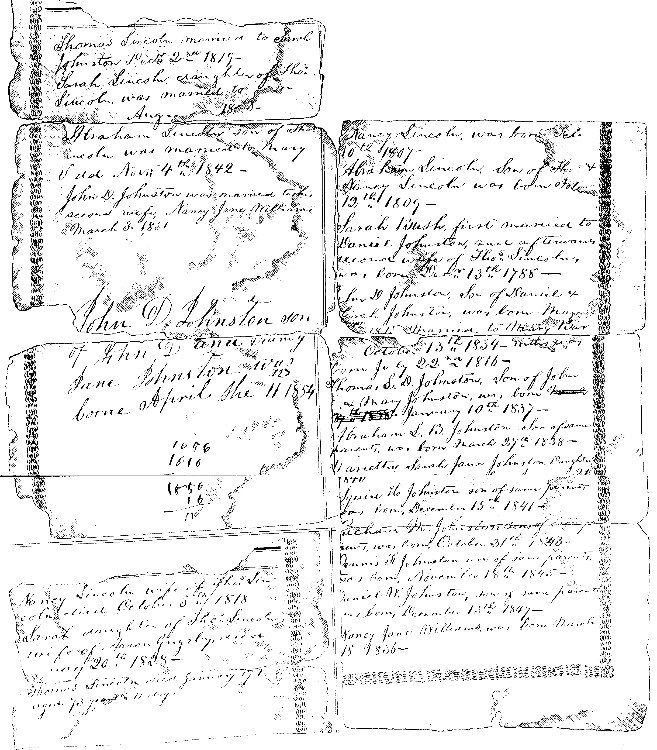 Thomas Lincoln married to Sarah
Johnston Decr 2nd 1819—
Sarah Lincoln daughter of Thos.
Lincoln was married to
Aug
Abraham Lincoln son of Thos
Lincoln was married to Mary
Todd Novr 4th 1842—
John D. Johnston was married to his
second wife, Nancy Jane Williams
March 5. 1851
John D. Johnston son
of John D and Nancy
Jane Johnston was
borne April the 11 1854
1856
1816
1856
16
Nancy Lincoln wife to Thos. Lin
coln died October 5th 1818
Sarah daughter of Thos Lincoln
wife of Aaron Grigsby died
uary 20th 1828—
Thomas Lincoln died January 17th
aged 73 years 11 days
Nancy Lincoln, was born Feb.
10th 1807—
Abraham Lincoln, Son of Thos. &
Nancy Lincoln was born Feb.
12th 1809—
Sarah Bush, first married to
Daniel Johnston, and afterwards
second wife of Thos. Lincoln,
was born Decr. 13th 1788—
John D Johnston, Son of Daniel &
Sarah Johnston, was born May
1815 Married to Mary Bar
October 13th 1834—
born July 22nd 1816—
Thomas L. D. Johnston, Son of John
& Mary Johnston, was born
January 10th 1837—
Abraham L. B. Johnston Son of same
parents, was born March 27th 1838—
Marietta Sarah Jane Johnston Daughter
1840
Squire H. Johnston son of same parents
was born, December 15th 1841—
Richard M. Johnston son of same p
rent, was born, October 21st 1843—
Dennis F. Johnston son of same parents
was born, November 18th 1845—
Daniel W. Johnston, son of same parents
was born, December 13th 1847—
Nancy Jane Williams, was born March
18 1836—